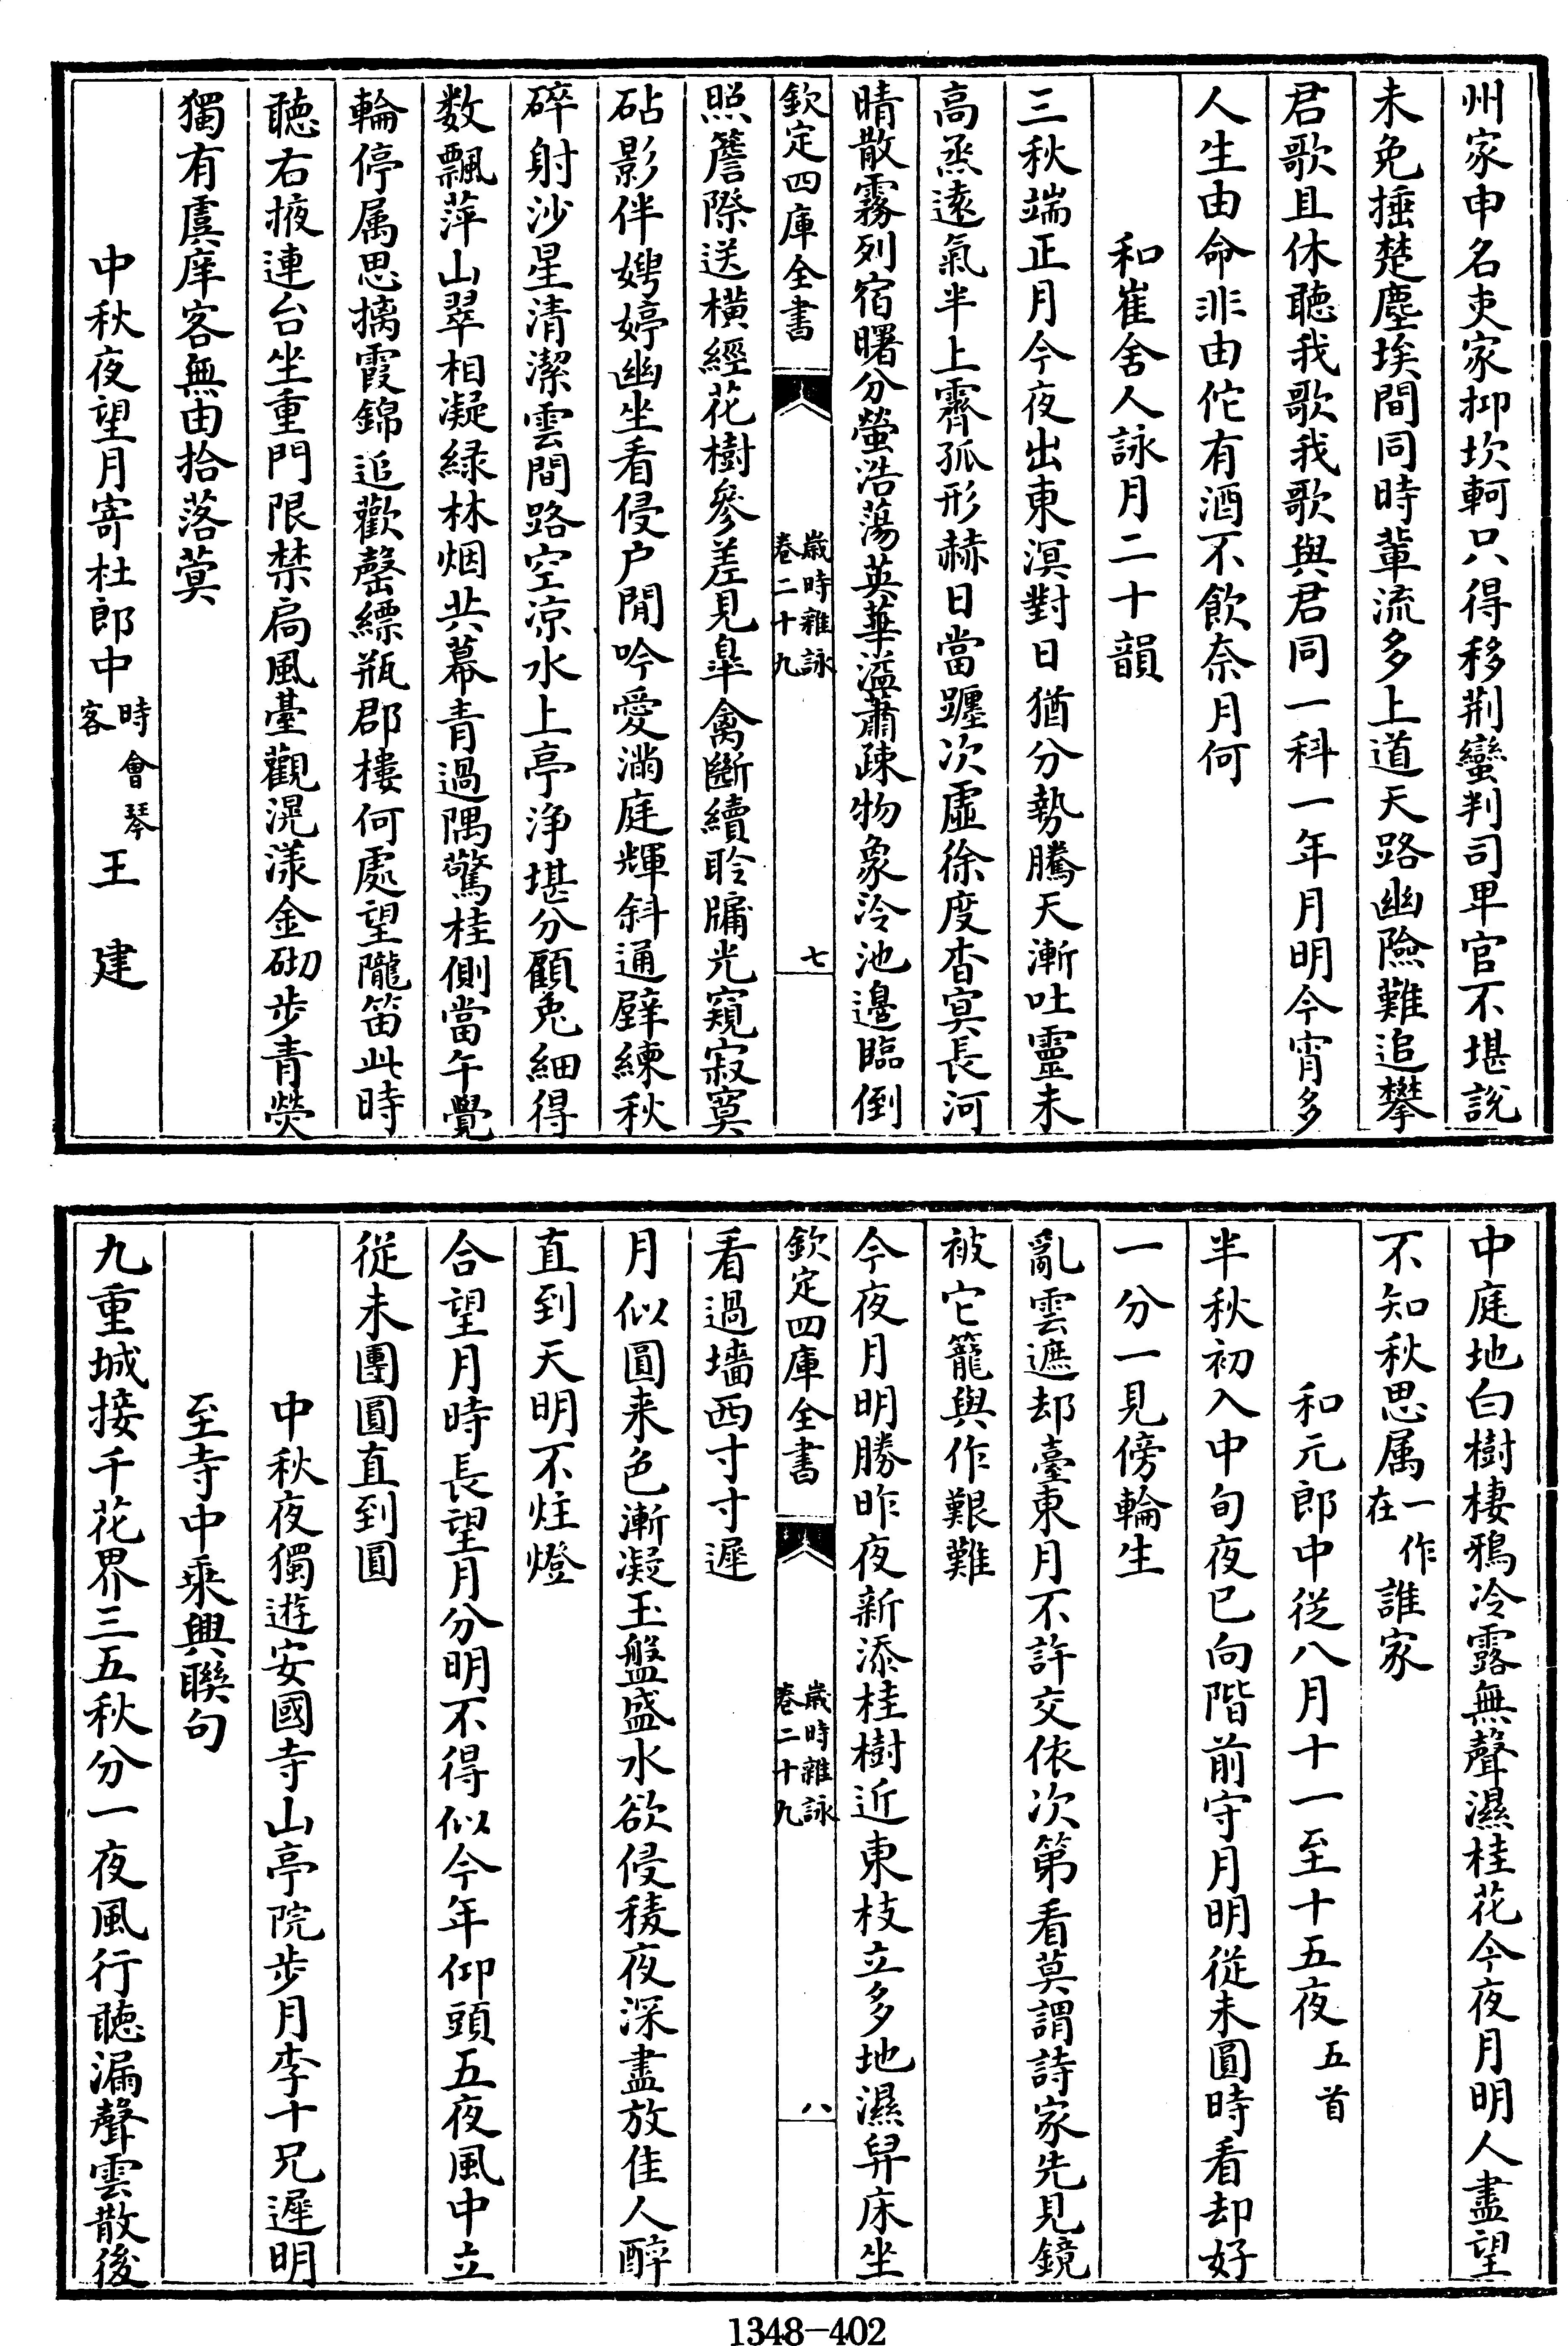 州家申名吏家抑坎軻只得移荆蠻判司卑官不堪說
未免捶楚塵埃間同時輩流多上道天路幽險難追攀
君歌且休聽我歌我歌與君同一科一年月明今宵多
人生由命非由佗有酒不飲奈月何
和崔舍人詠月二十韻
三秋端正月今夜出東溟對日猶分勢騰天漸吐靈未
高烝遠氣半上霽孤形赫日當躔次虛徐度杳冥長河
晴散霧列宿曙分螢浩蕩英華溢蕭疎物象泠池邊臨倒
欽定四庫全書
歲時雜詠
卷二十九
七
照簷際送橫經花樹參差見臯禽斷續聆牖光窺寂寞
砧影伴娉婷幽坐看侵户閒吟愛滿庭輝斜通壁練秋
碎射沙星清潔雲間路空凉水上亭浄堪分顧兔細得
数飄萍山翠相凝緑林烟共幕青過隅驚桂側當午覺
輪停属思摛霞錦追歡罄縹瓶郡樓何處望隴笛此時
聽右掖連台坐重門限禁扃風臺觀滉漾金砌步青熒
獨有虞庠客無由拾落蓂
中秋夜望月寄杜郎中時會琴客 王建
中庭地白樹棲鴉冷露無聲濕桂花今夜月明人盡望
不知秋思属一作在誰家
和元郎中從八月十一至十五夜五首
半秋初入中旬夜已向階前守月明從未圓時看却好
一分一見傍輪生
亂雲遮却臺東月不許交依次第看莫謂詩家先見鏡
被它籠與作艱難
今夜月明勝昨夜新添桂樹近東枝立多地濕舁床坐
欽定四庫全書
歲時雜詠
卷二十九
八
看過墻西寸寸遲
月似圓来色漸凝玉盤盛水欲侵稜夜深盡放佳人醉
直到天明不炷燈
合望月時長望月分明不得似今年仰頭五夜風中立
從未團圓直到圓
中秋夜獨遊安國寺山亭院步月李十兄遲明
至寺中乘興聯句
九重城接千花界三五秋分一夜風行聽漏聲雲散後
1348-402